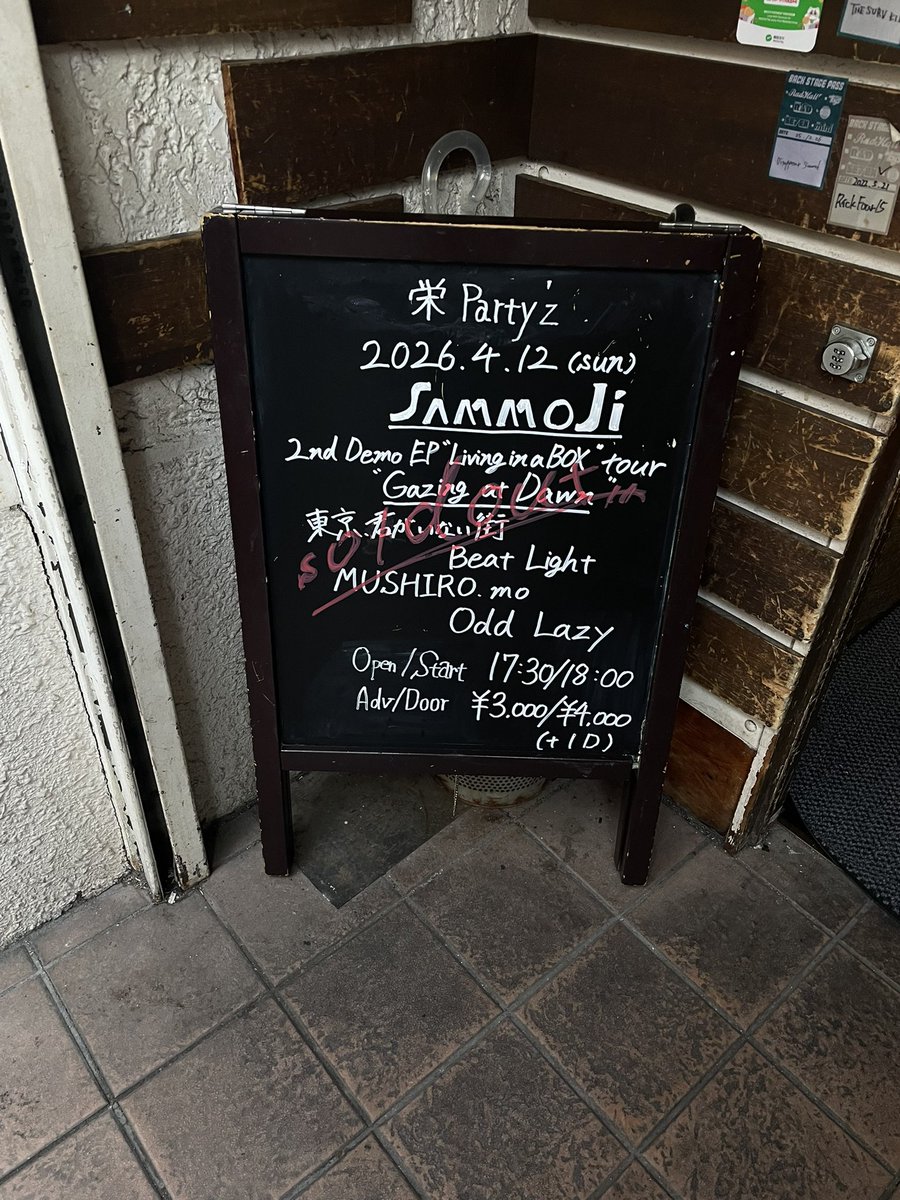 栄 Party'z
2026.4.12 (sun)
SAMMOJi
2nd Demo EP "Living in a BOX" tour
"Gazing at Dawn"
sold out!!
東京、君がいない街
Beat Light
MUSHIRO.mo
Odd Lazy
Open/Start 17:30/18:00
Adv/Door ¥3.000/¥4.000
(+1D)
BACK STAGE PASS
RAD
BACK STAGE PASS
RAD
2022.5.21